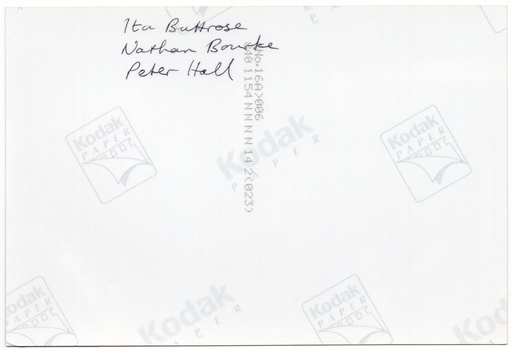 Ita Buttrose
Nathan Bourke
Peter Hall
<No.16A>006
040 1154 NNNNN 14 2(023)
Kodak
PAPER
Kodak
PAPER
Kodak
PAPER
Kodak
PAPER
Kodak
PAPER
Kodak
PAPER
Kodak